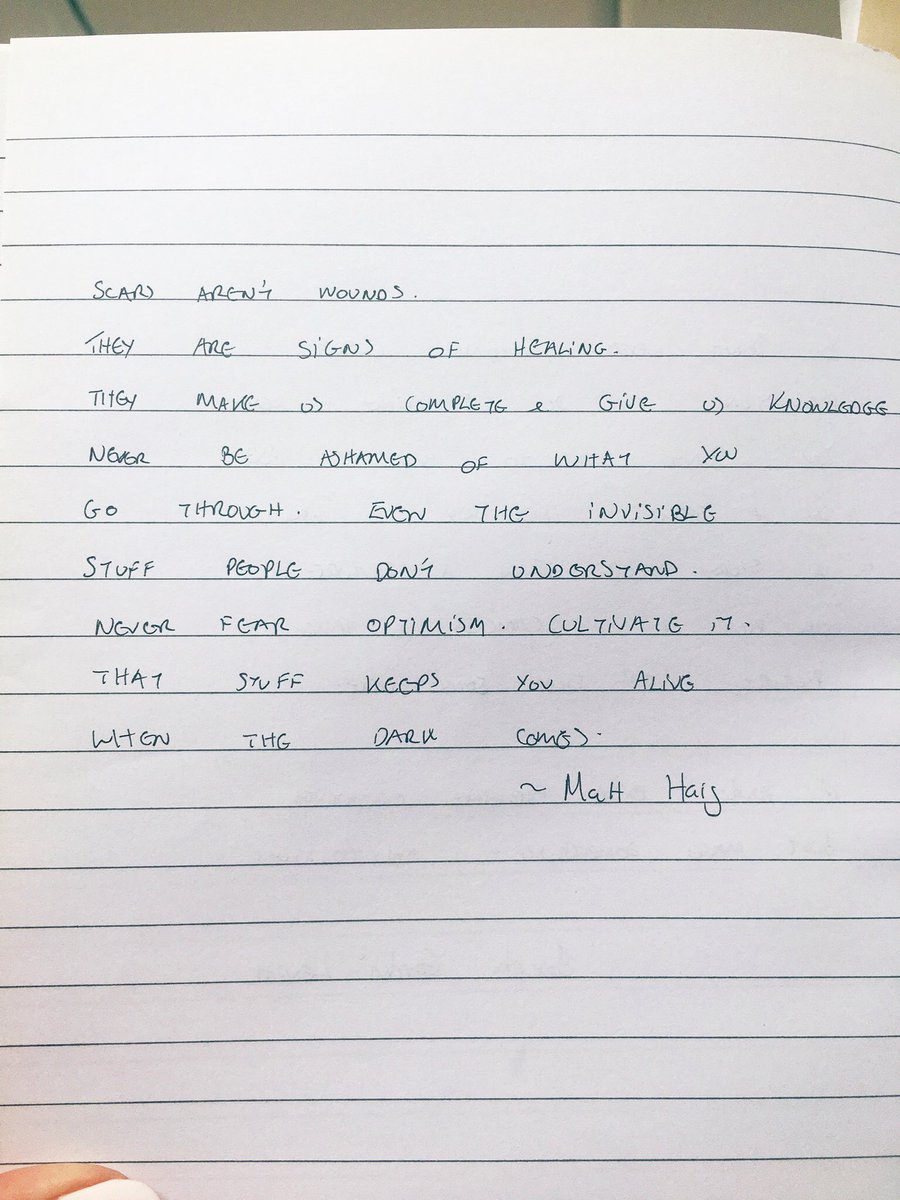 SCARS AREN'T WOUNDS.
THEY ARE SIGNS OF HEALING.
THEY MAKE US COMPLETE & GIVE US KNOWLEDGE
NEVER BE ASHAMED OF WHAT YOU
GO THROUGH. EVEN THE INVISIBLE
STUFF PEOPLE DON'T UNDERSTAND.
NEVER FEAR OPTIMISM. CULTIVATE IT.
THAT STUFF KEEPS YOU ALIVE
WHEN THE DARK COMES.
~ Matt Haig